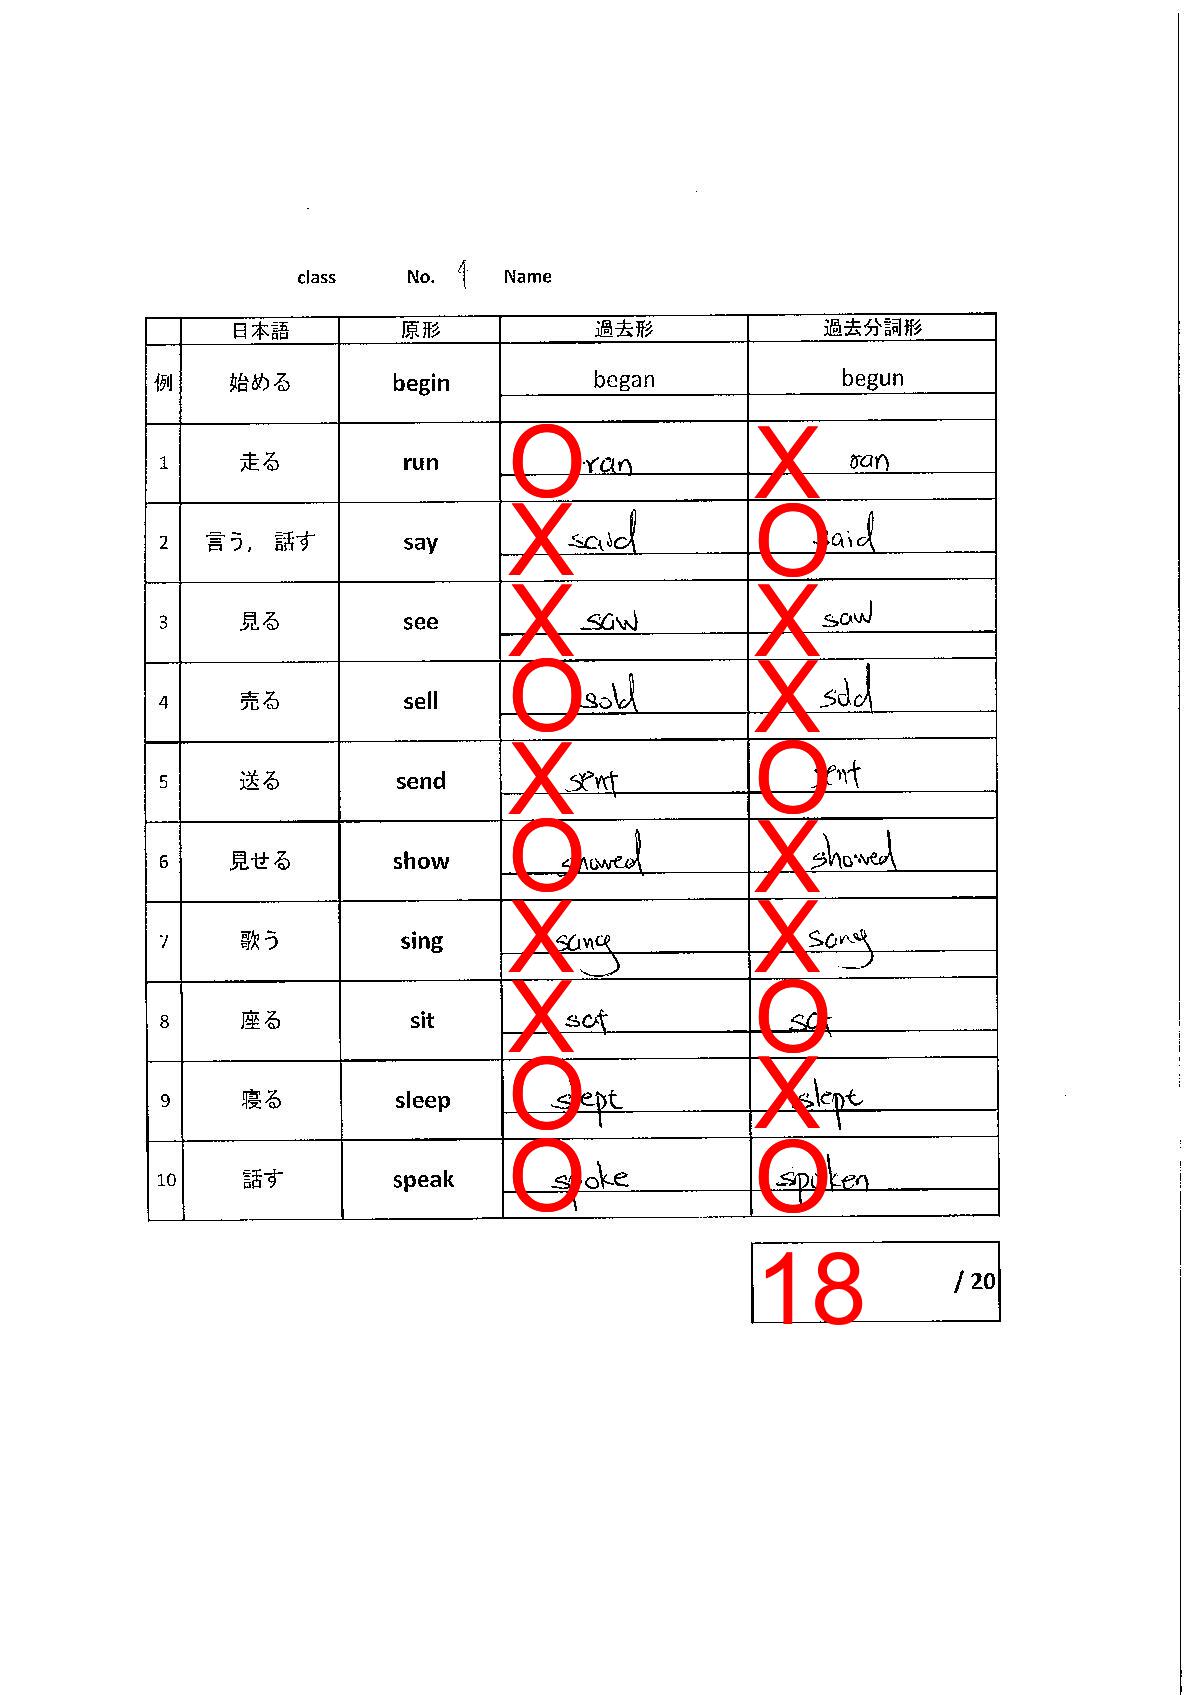 class No. 9 Name
日本語 原形 過去形 過去分詞形
例 始める begin began begun
1 走る run O ran X ran
2 言う, 話す say X said O said
3 見る see X saw X saw
4 売る sell O sold X sold
5 送る send X sent O sent
6 見せる show O showed X showed
7 歌う sing X sang X sang
8 座る sit X sat O sat
9 寝る sleep O slept X slept
10 話す speak O spoke O spoken
18 / 20